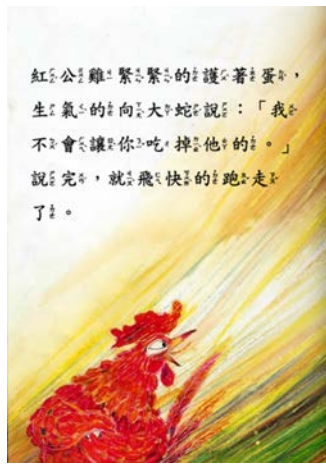 紅公雞緊緊的護著蛋，
生氣的向大蛇說：「我
不會讓你吃掉他的。」
說完，就飛快的跑走
了。